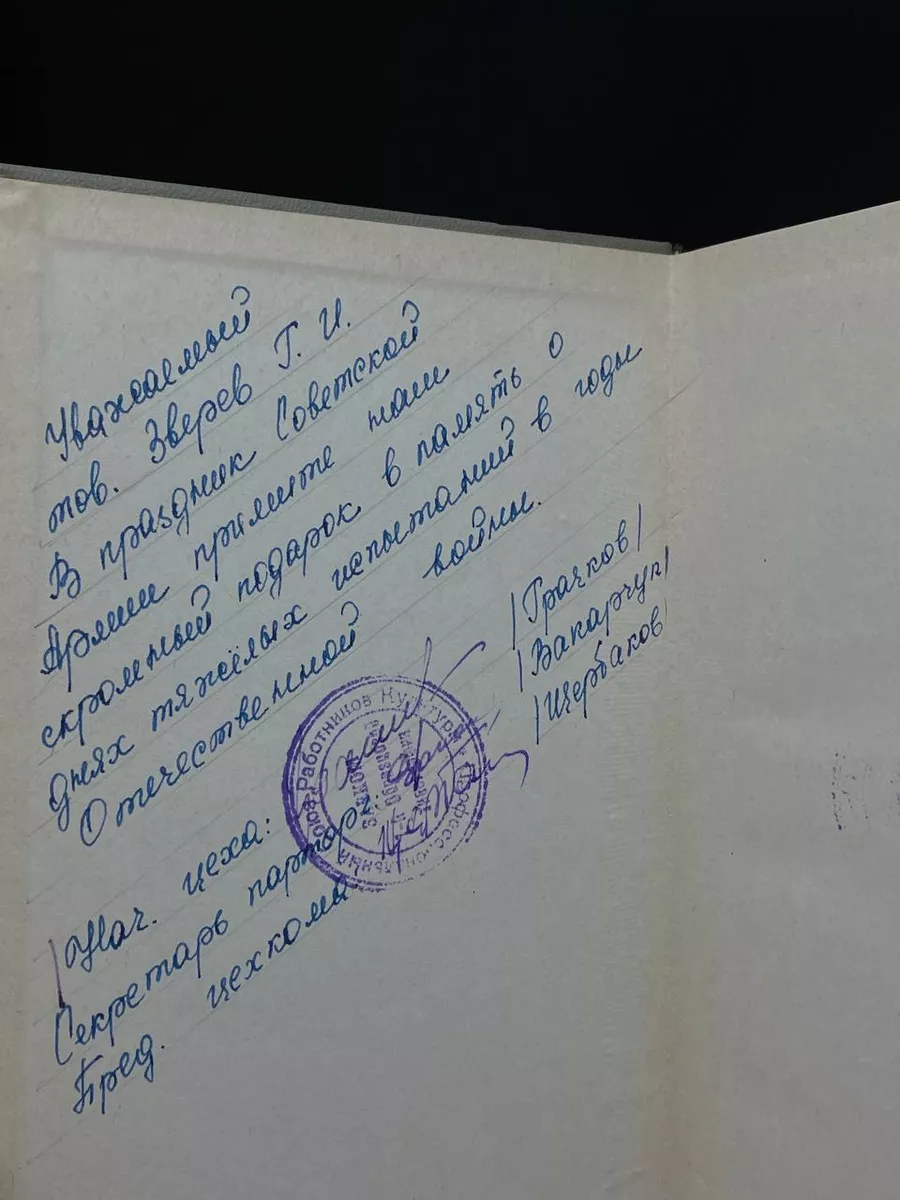 Уважаемый
тов. Зверев Г. И.
В праздник Советской
Армии примите наш
скромный подарок в память о
днях тяжёлых испытаний в годы
Отечественной войны.
Нач. цеха: /Грачков/
Секретарь парторг. /Вакарчук/
Пред. цехкома /Щербаков/
Профессиональный Союз Работников Культуры
ЗАВКОМ